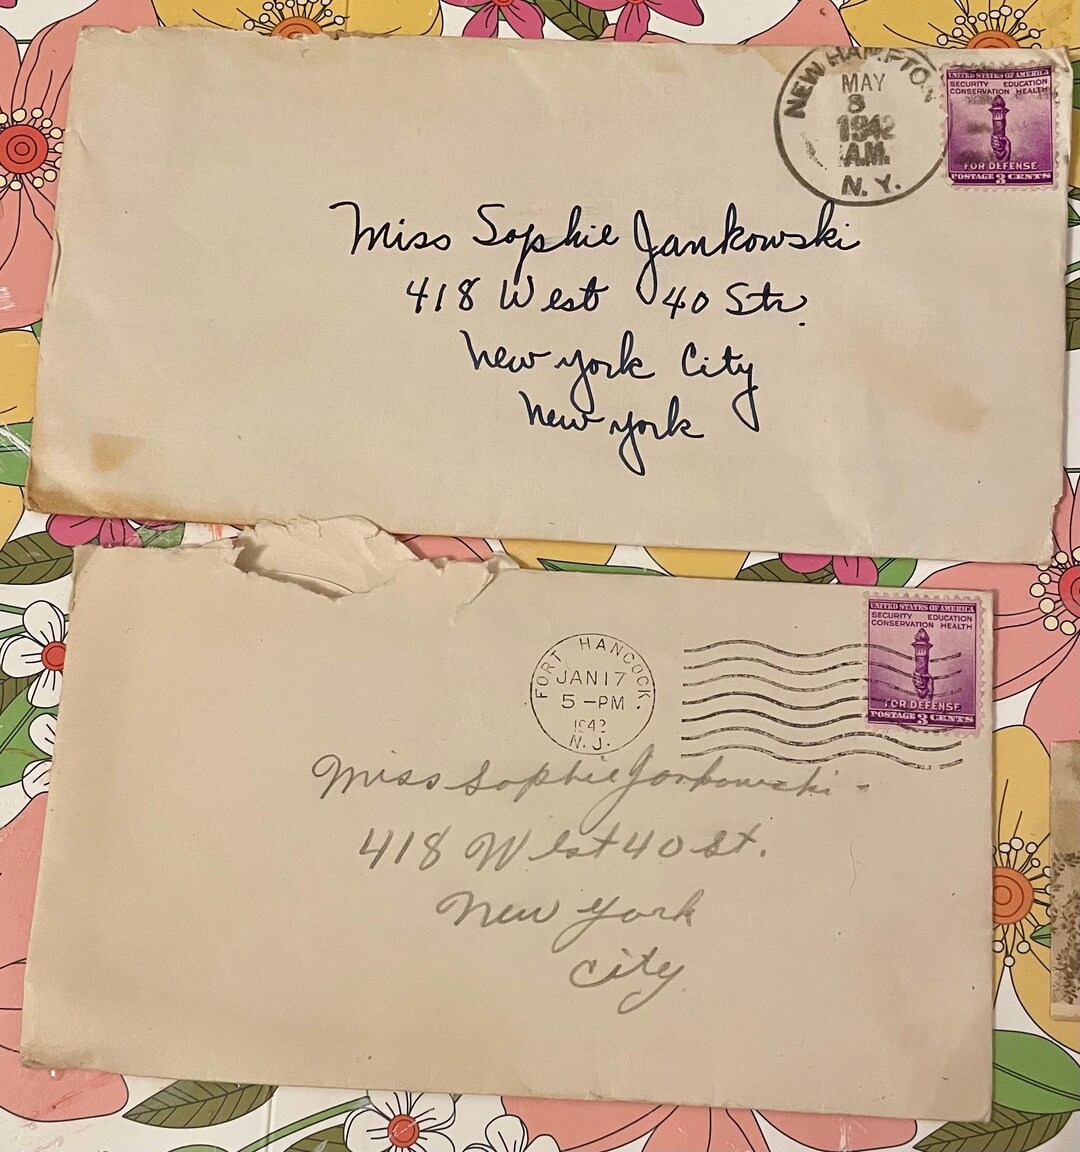 NEW HAMPTON
MAY
8
1942
A.M.
N. Y.
UNITED STATES OF AMERICA
SECURITY EDUCATION
CONSERVATION HEALTH
FOR DEFENSE
POSTAGE 3 CENTS
Miss Sophie Jankowski
418 West 40 Str.
New York City
New York
FORT HANCOCK.
JAN 17
5 - PM
1942
N. J.
UNITED STATES OF AMERICA
SECURITY EDUCATION
CONSERVATION HEALTH
FOR DEFENSE
POSTAGE 3 CENTS
Miss Sophie Jankowski -
418 West 40 St.
New York
City.